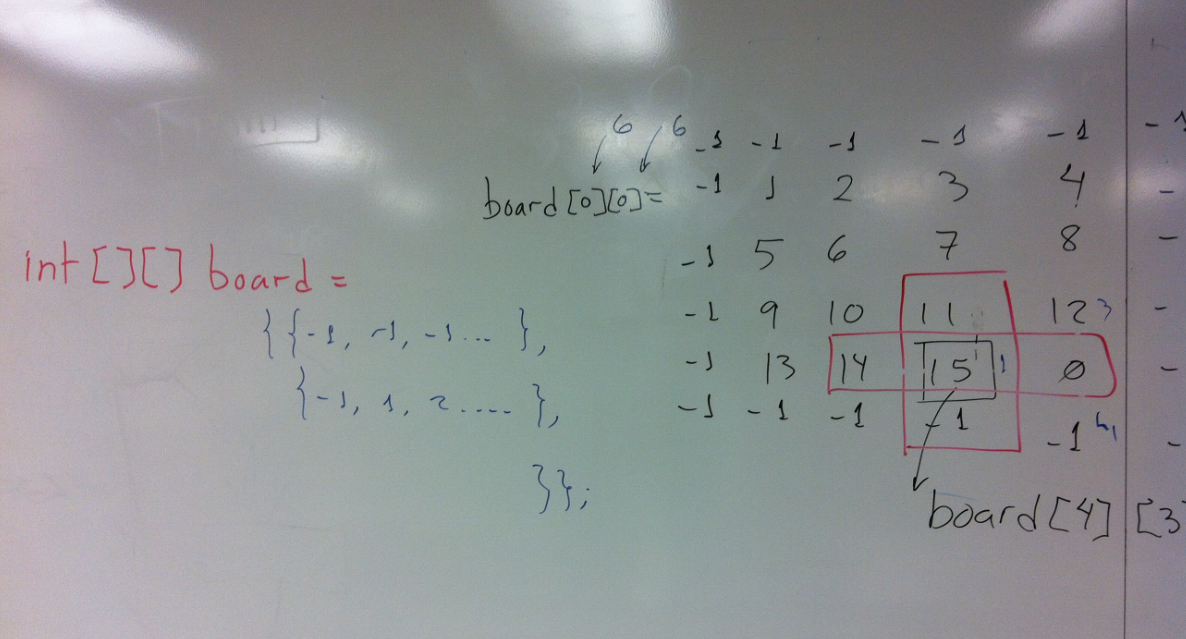 6 6
-1 -1 -1 -1 -1 -1
board[0][0]= -1 1 2 3 4 -
int [][] board =
-1 5 6 7 8 -
{{-1, -1, -1... },
-1 9 10 11 12 3 -
-1 13 14 15 1 0 -
{-1, 1, 2.... },
-1 -1 -1 -1 -1 -
}};
board[4][3